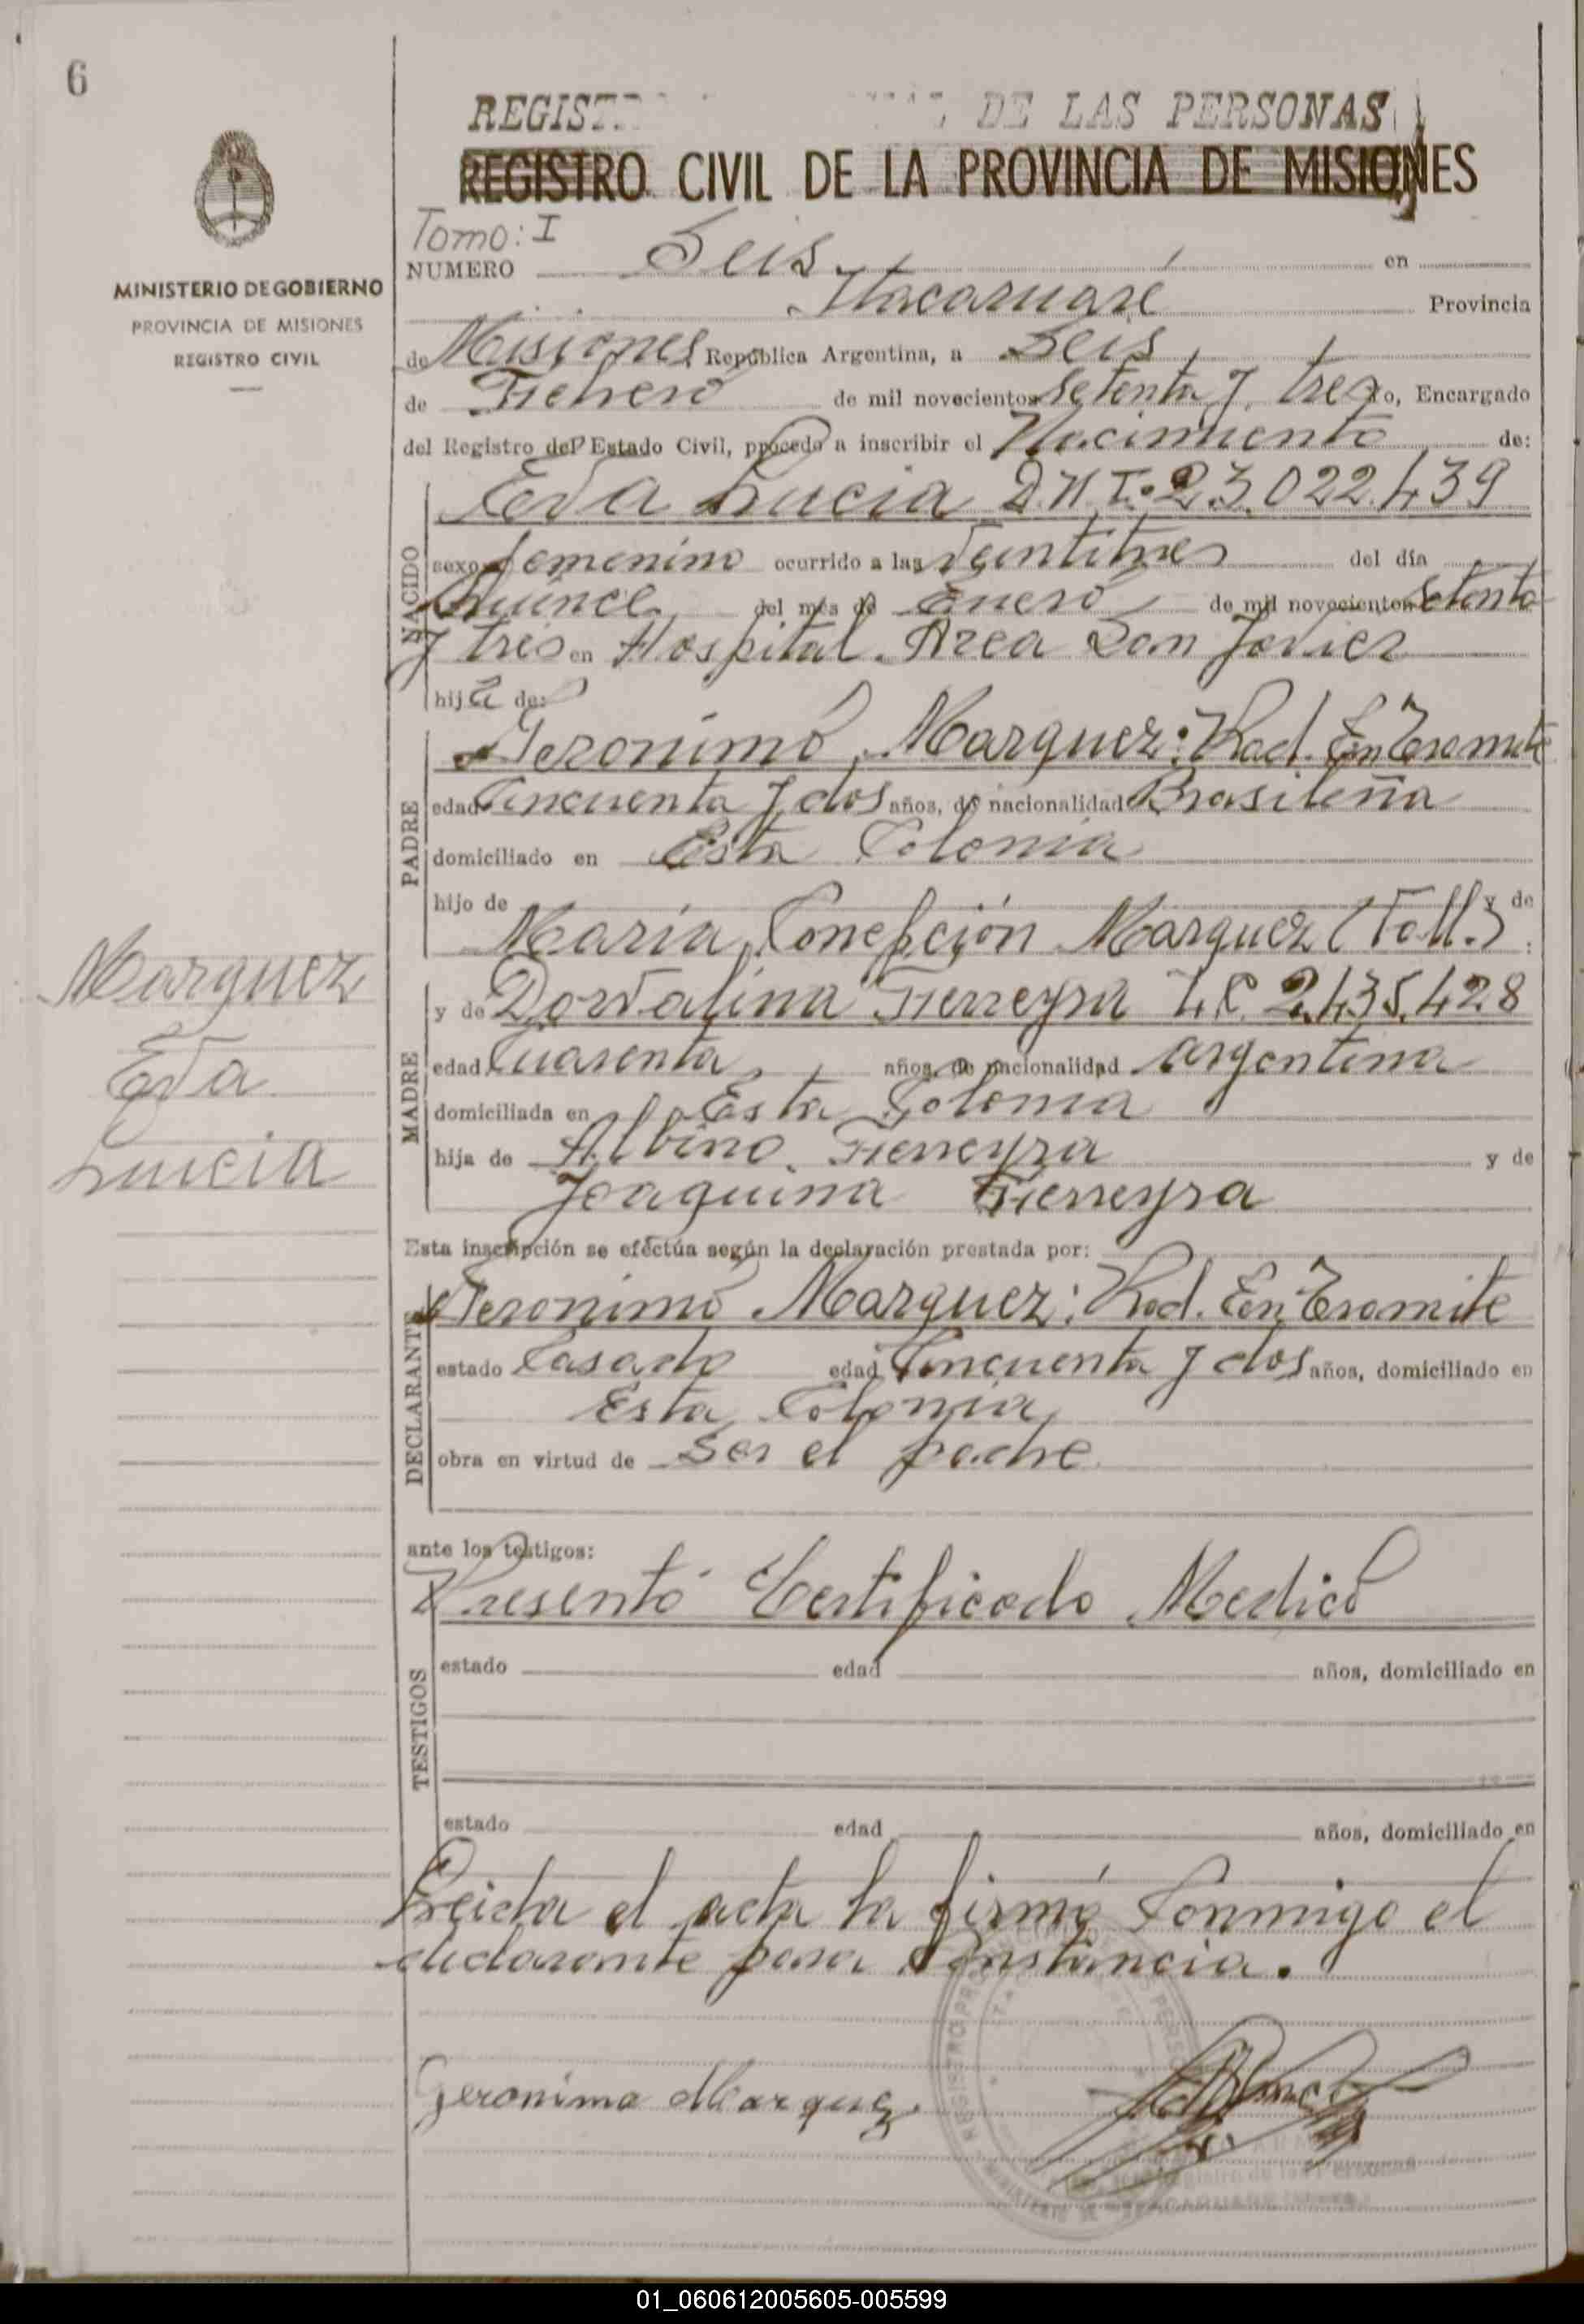 6
REGIST DE LAS PERSONAS
REGISTRO CIVIL DE LA PROVINCIA DE MISIONES
MINISTERIO DE GOBIERNO
PROVINCIA DE MISIONES
REGISTRO CIVIL
Tomo: I
NUMERO Seis en
Itacaruaré Provincia
de Misiones República Argentina, a Seis
de Febrero de mil novecientos Setenta y tres yo, Encargado
del Registro del Estado Civil, procedo a inscribir el Nacimiento de:
NACIDO
Eva Lucia D.N.I. 23.022.439
sexo femenino ocurrido a las Veintitres del día
Quince del més de Enero de mil novecientos Setenta
y tres en Hospital Area San Javier
hija de:
PADRE
Jeronimo Marquez: Rad. En Tramite
edad Cincuenta y dos años, de nacionalidad Brasileña
domiciliado en Esta Colonia
hijo de y de
María Concepción Marquez (Fall.)
MADRE
y de Dorvalina Ferreyra L.C. 2.435.428
edad Cuarenta años, de nacionalidad argentina
domiciliada en Esta Colonia
hija de Albino Ferreyra y de
Joaquina Ferreyra
Marquez
Eva
Lucia
Esta inscripción se efectúa según la declaración prestada por:
DECLARANTE
Jeronimo Marquez: Rad. En Tramite
estado Casado edad Cincuenta y dos años, domiciliado en
Esta Colonia
obra en virtud de Ser el padre
ante los testigos:
Presentó Certificado Medico
TESTIGOS
estado edad años, domiciliado en
estado edad años, domiciliado en
Leida el acta la firmó Conmigo el
declarante para Constancia.
Geronimo Marquez
01_060612005605-005599